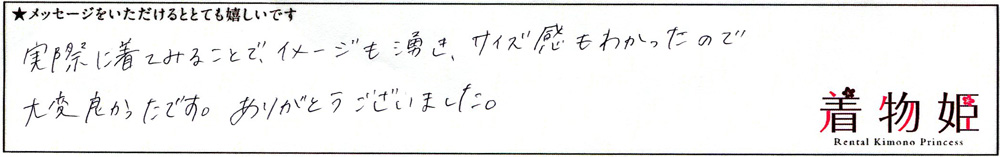 ★メッセージをいただけるととても嬉しいです
実際に着てみることで、イメージも湧き、サイズ感もわかったので
大変良かったです。ありがとうございました。
着物姫
Rental Kimono Princess